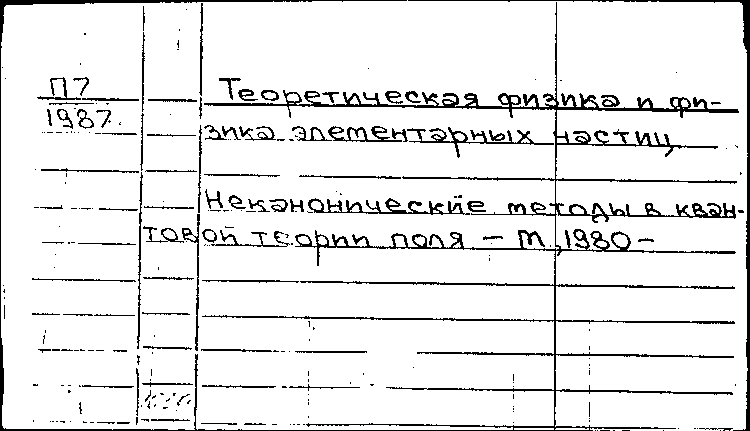 П7
1987.
Теоретическая физика и фи-
зика элементарных частиц
Неканонические методы в кван-
товой теории поля – М, 1980 –